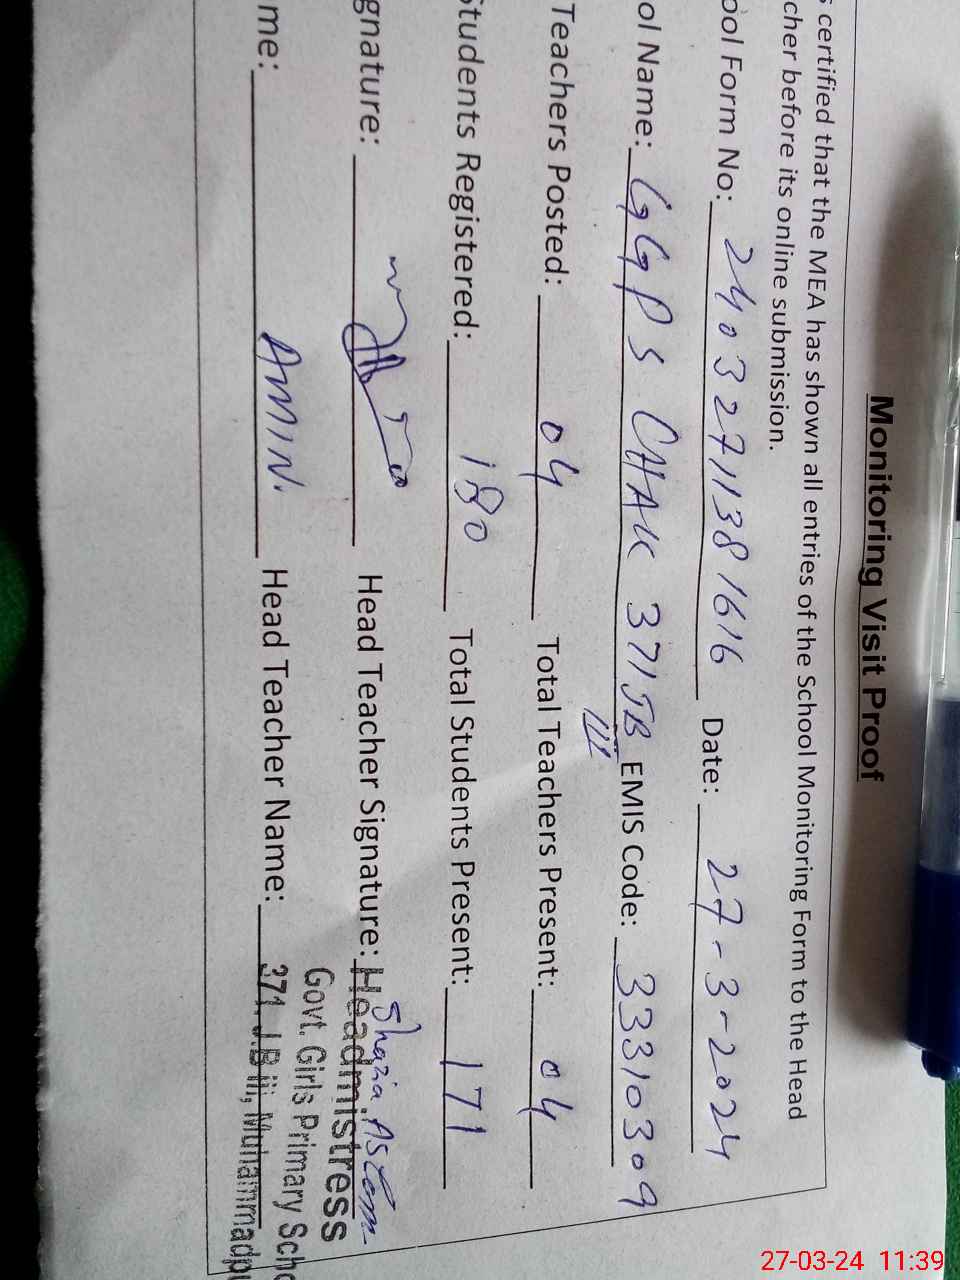 Monitoring Visit Proof
s certified that the MEA has shown all entries of the School Monitoring Form to the Head
cher before its online submission.
ool Form No: 24032711381616 Date: 27-3-2024
ol Name: GGPS CHAK 371JB III EMIS Code: 33310309
Teachers Posted: 04 Total Teachers Present: 04
Students Registered: 180 Total Students Present: 171
gnature: Head Teacher Signature: Shazia Aslam
Headmistress
Govt. Girls Primary Scho
me: AMIN. Head Teacher Name: 371 J.B iii, Muhammadpu
27-03-24 11:39